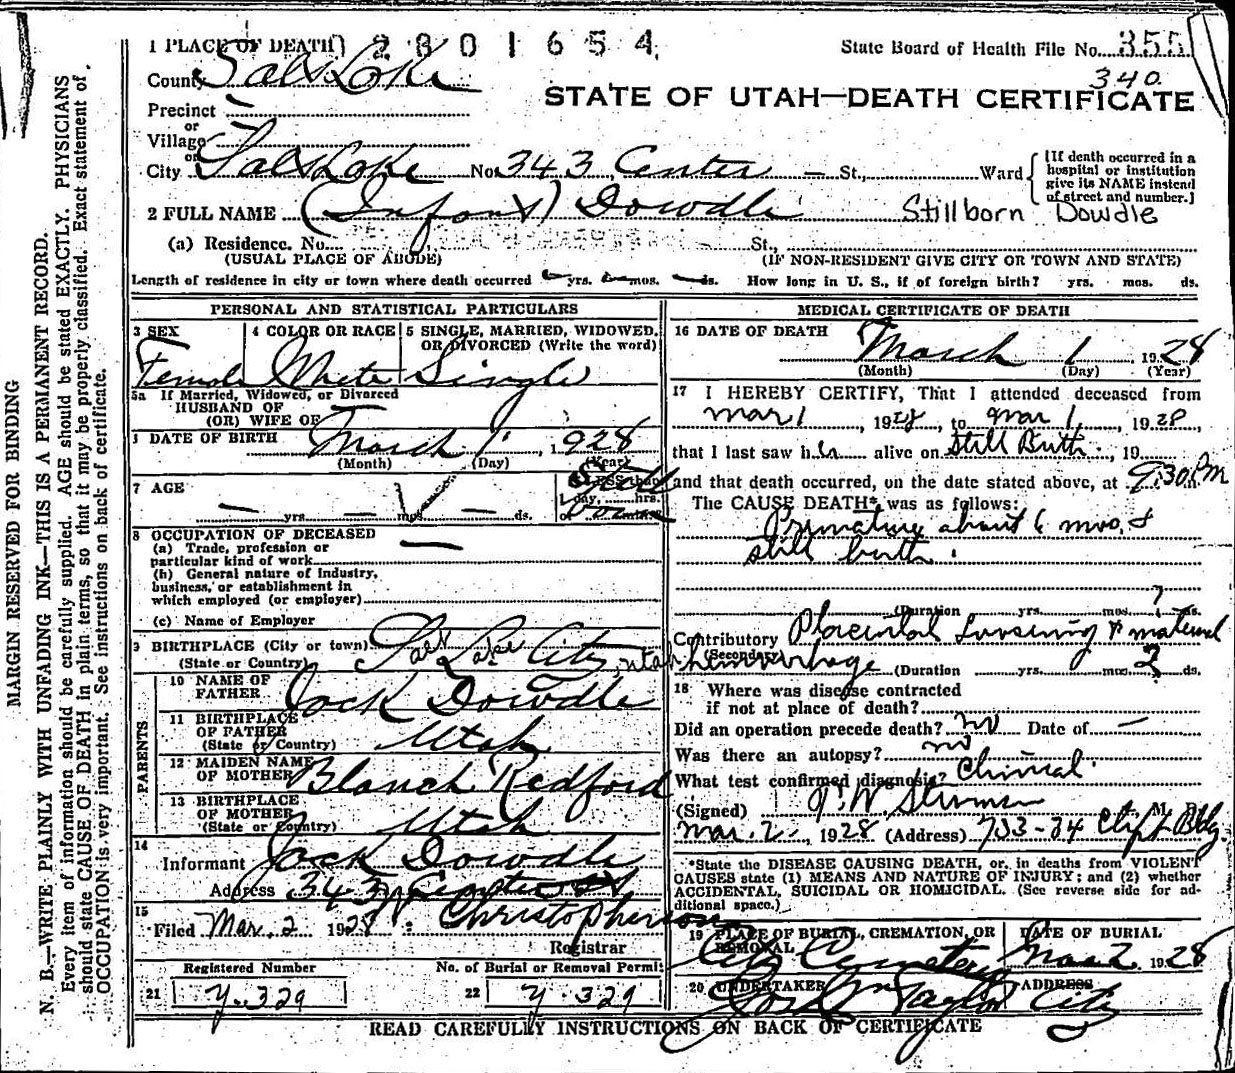 1 PLACE OF DEATH 2801654
State Board of Health File No. 355
340
County Salt Lake
STATE OF UTAH—DEATH CERTIFICATE
Precinct
or
Village
or
City Salt Lake No. 343 Center – St., Ward
[If death occurred in a hospital or institution give its NAME instead of street and number.]
2 FULL NAME (Infant) Dowdle Stillborn Dowdle
(a) Residence. No. St.,
(USUAL PLACE OF ABODE) (IF NON-RESIDENT GIVE CITY OR TOWN AND STATE)
Length of residence in city or town where death occurred – yrs. – mos. – ds. How long in U. S., if of foreign birth? yrs. mos. ds.
PERSONAL AND STATISTICAL PARTICULARS
3 SEX 4 COLOR OR RACE 5 SINGLE, MARRIED, WIDOWED, OR DIVORCED (Write the word)
Female White Single
5a If Married, Widowed, or Divorced
HUSBAND OF
(OR) WIFE OF
DATE OF BIRTH March 1, 1928
(Month) (Day) (Year)
7 AGE – yrs. – mos. – ds. If LESS than 1 day, hrs. or
Still born
8 OCCUPATION OF DECEASED –
(a) Trade, profession or
particular kind of work
(b) General nature of industry,
business, or establishment in
which employed (or employer)
(c) Name of Employer
9 BIRTHPLACE (City or town) Salt Lake City, Utah
(State or Country)
PARENTS
10 NAME OF
FATHER Jack Dowdle
11 BIRTHPLACE
OF FATHER
(State or Country) Utah
12 MAIDEN NAME
OF MOTHER Blanch Redford
13 BIRTHPLACE
OF MOTHER
(State or Country) Utah
14
Informant Jack Dowdle
Address 343 Center St
15
Filed Mar. 2 1928 Christopherson
Registrar
Registered Number No. of Burial or Removal Permit
21 Y-329 22 Y-329
MEDICAL CERTIFICATE OF DEATH
16 DATE OF DEATH
March 1 1928
(Month) (Day) (Year)
17 I HEREBY CERTIFY, That I attended deceased from
Mar 1, 1928, to Mar 1, 1928,
that I last saw her alive on Still Birth, 19
and that death occurred, on the date stated above, at 9:30 PM
The CAUSE DEATH* was as follows:
Primature about 6 mos. &
still birth.
(Duration yrs. mos. ? ds.
Contributory Placental Loosening & maternal
(Secondary) hemorrhage (Duration yrs. mos. ? ds.
18 Where was disease contracted
if not at place of death?
Did an operation precede death? no Date of –
Was there an autopsy? no
What test confirmed diagnosis? Clinical
(Signed) M. D.
Mar. 2, 1928 (Address) 733-34 Clift Bldg.
*State the DISEASE CAUSING DEATH, or, in deaths from VIOLENT
CAUSES state (1) MEANS AND NATURE OF INJURY; and (2) whether
ACCIDENTAL, SUICIDAL OR HOMICIDAL. (See reverse side for ad-
ditional space.)
19 PLACE OF BURIAL, CREMATION, OR REMOVAL DATE OF BURIAL
City Cemetery Mar 2 1928
20 UNDERTAKER ADDRESS
Jos. Wm Taylor City
READ CAREFULLY INSTRUCTIONS ON BACK OF CERTIFICATE
MARGIN RESERVED FOR BINDING
N. B.—WRITE PLAINLY WITH UNFADING INK—THIS IS A PERMANENT RECORD.
Every item of information should be carefully supplied. AGE should be stated EXACTLY. PHYSICIANS
should state CAUSE OF DEATH in plain terms, so that it may be properly classified. Exact statement of
OCCUPATION is very important. See instructions on back of certificate.